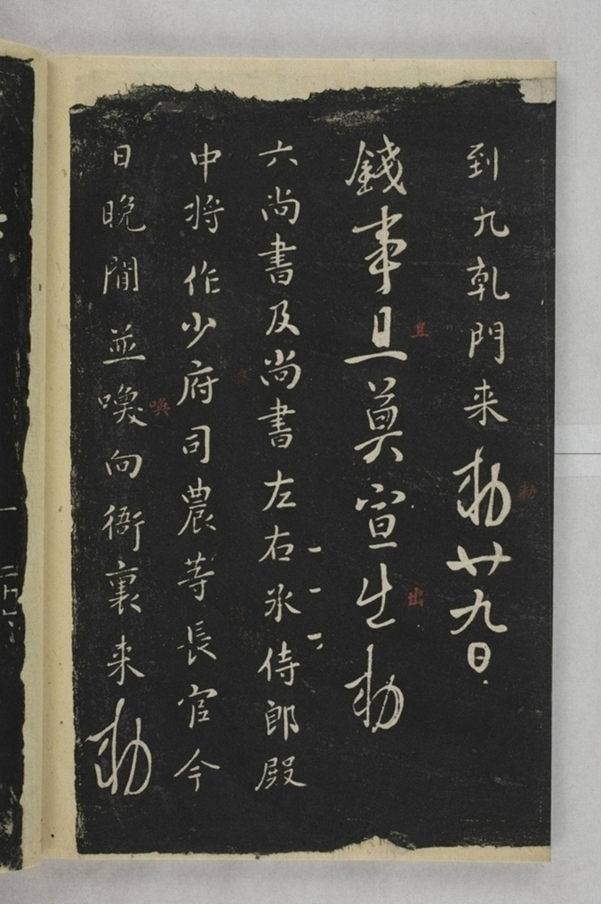 到九乹門来勅廿九日
錢事且莫宣出勅
六尚書及尚書左右丞侍郎殿
中将作少府司農等長官今
日晚間並喚向衙裏来勅
且
勅
出
喚